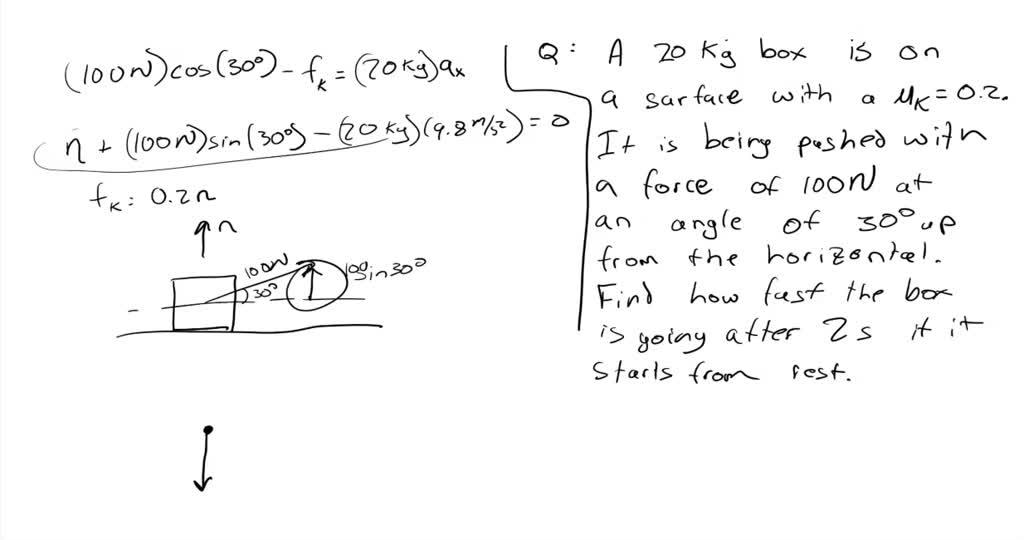 (100N)cos(30°) - fₖ = (20kg)aₓ
n + (100N)sin(30°) - (20kg)(9.8 m/s²) = 0
fₖ = 0.2n
n
100N
30°
100sin30°
Q: A 20 Kg box is on
a sarface with a μₖ = 0.2.
It is being pushed with
a force of 100N at
an angle of 30° up
from the horizontal.
Find how fast the box
is going after 2s if it
starts from rest.